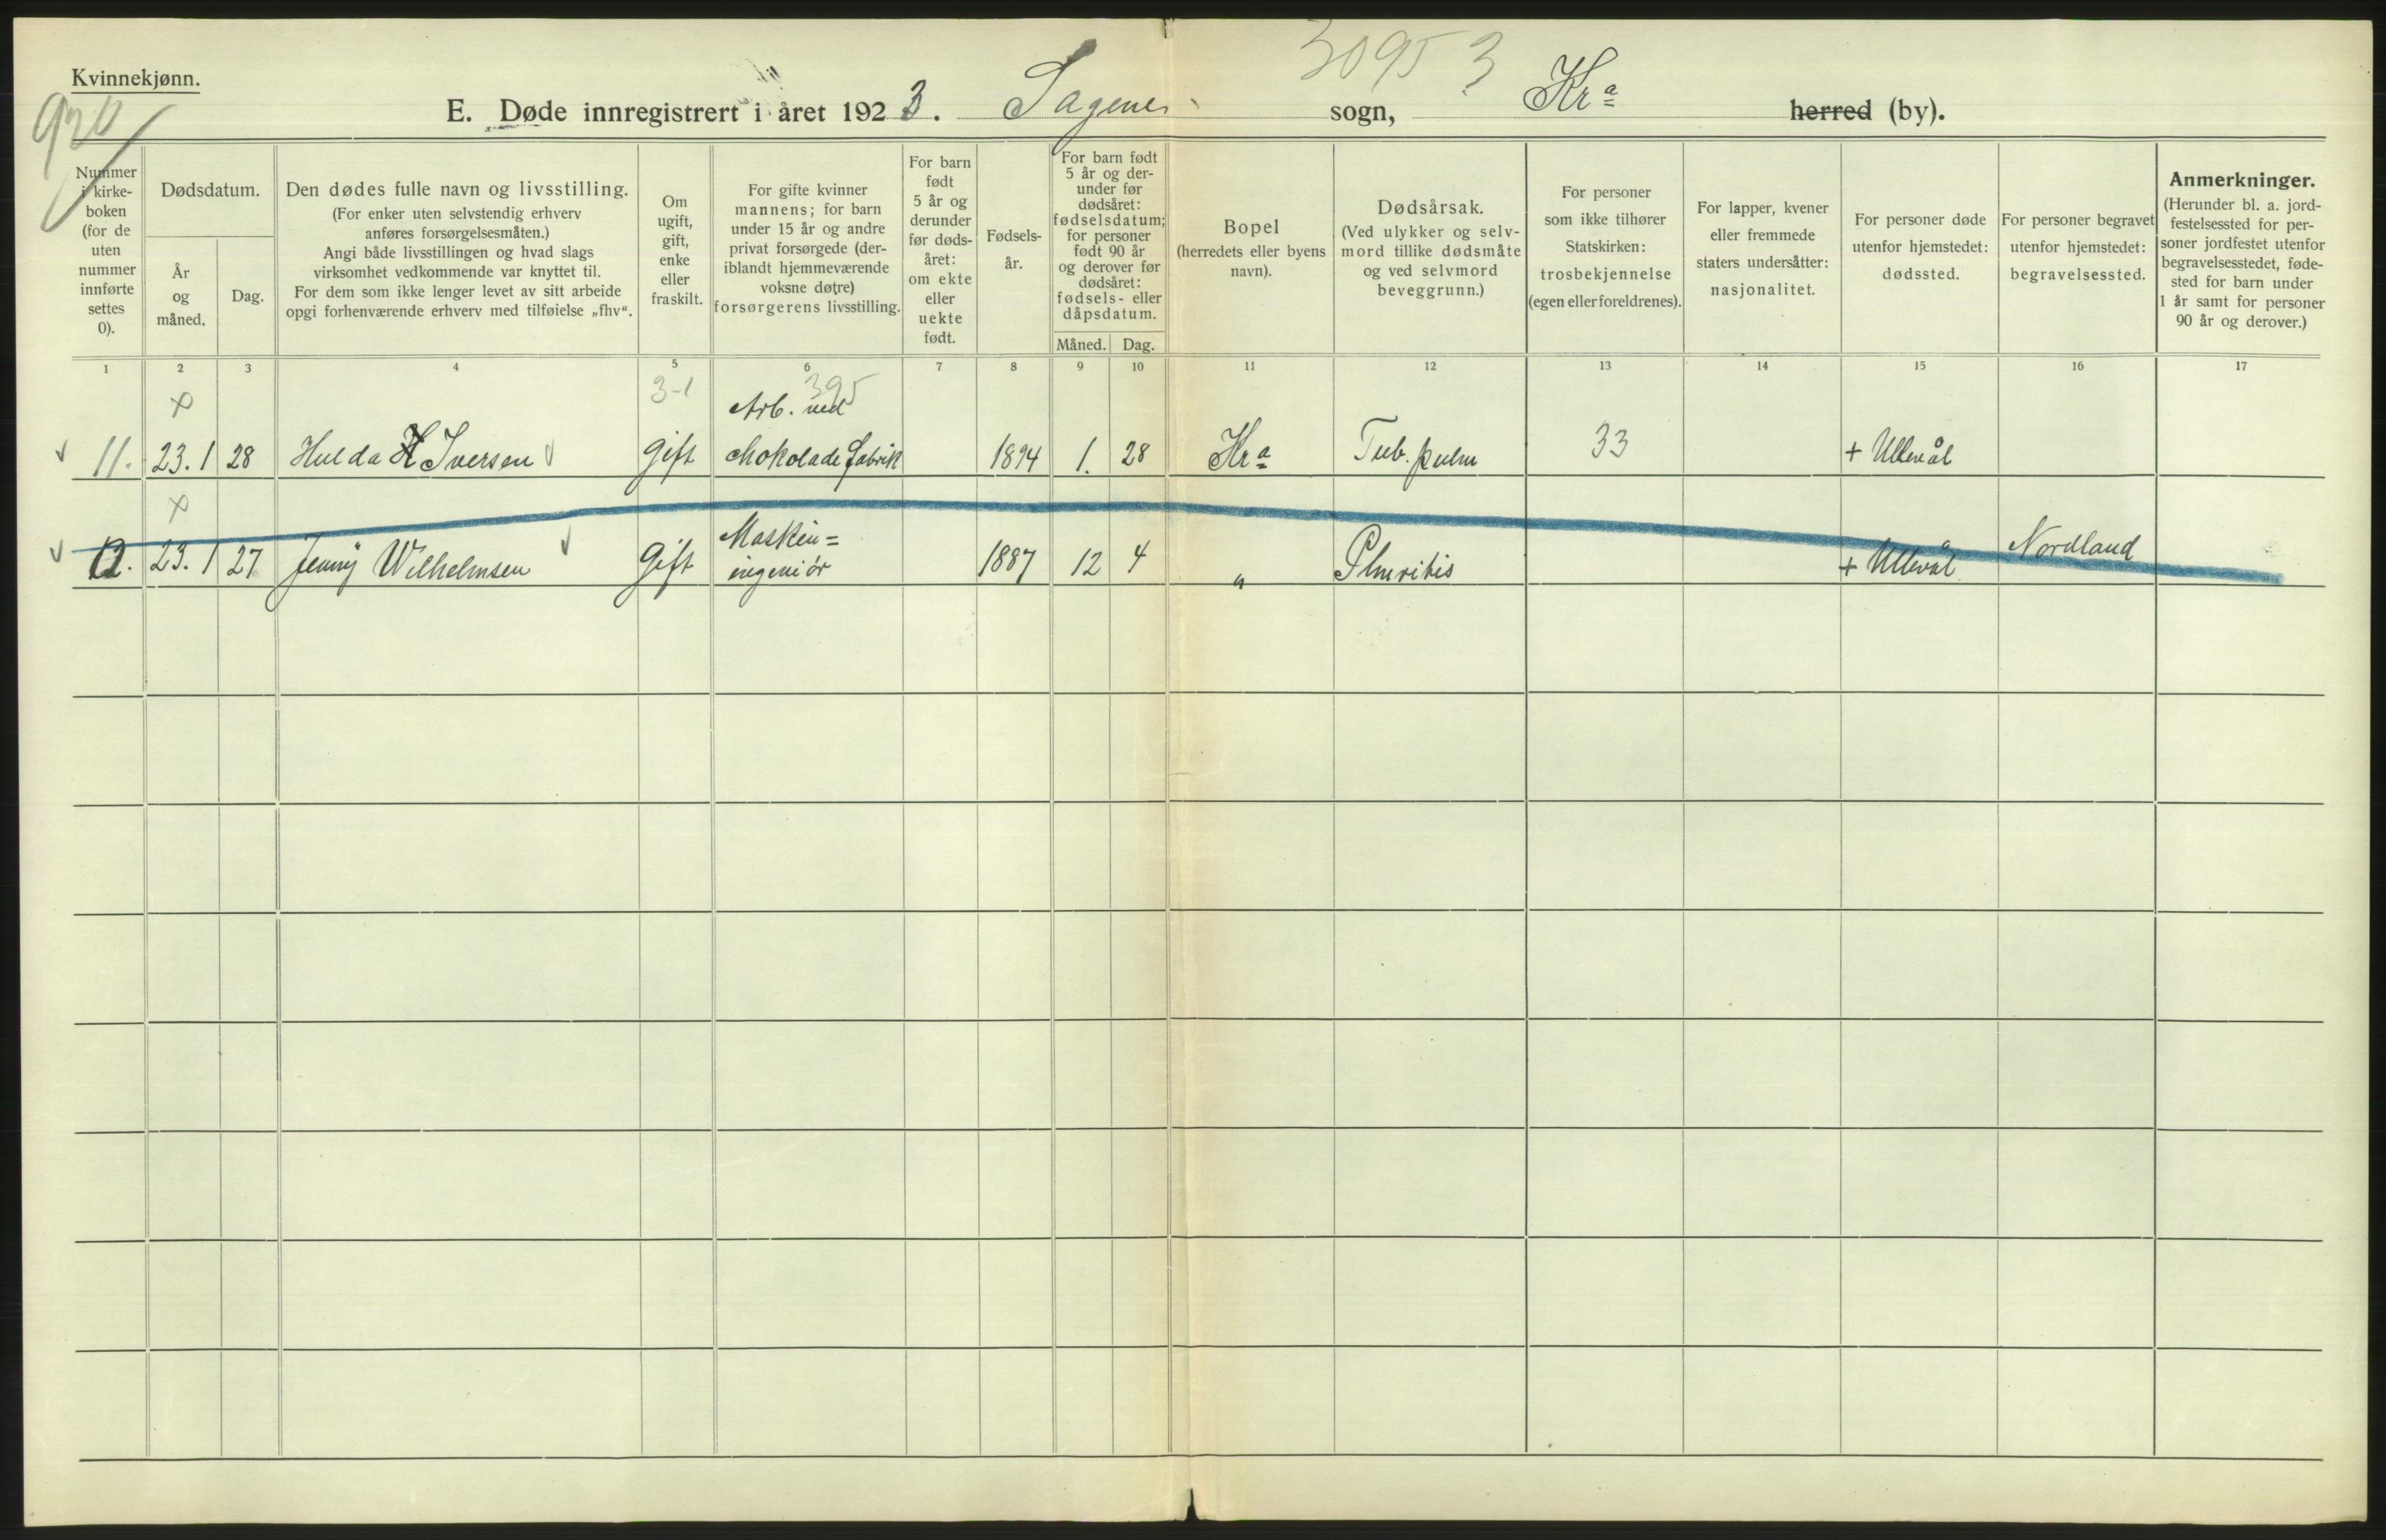 Kvinnekjønn.
920
30953
E. Døde innregistrert i året 1923. Sagene sogn, Kra herred (by).
Nummer i kirke- boken (for de uten nummer innførte settes 0).
Dødsdatum.
År og måned.
Dag.
Den dødes fulle navn og livsstilling.
(For enker uten selvstendig erhverv
anføres forsørgelsesmåten.)
Angi både livsstillingen og hvad slags
virksomhet vedkommende var knyttet til.
For dem som ikke lenger levet av sitt arbeide
opgi forhenværende erhverv med tilføielse „fhv“.
Om
ugift,
gift,
enke
eller
fraskilt.
For gifte kvinner
mannens; for barn
under 15 år og andre
privat forsørgede (der-
iblandt hjemmeværende
voksne døtre)
forsørgerens livsstilling.
For barn
født
5 år og
derunder
før døds-
året:
om ekte
eller
uekte
født.
Fødsels-
år.
For barn født
5 år og der-
under før
dødsåret:
fødselsdatum;
for personer
født 90 år
og derover før
dødsåret:
fødsels- eller
dåpsdatum.
Måned. Dag.
Bopel
(herredets eller byens
navn).
Dødsårsak.
(Ved ulykker og selv-
mord tillike dødsmåte
og ved selvmord
beveggrunn.)
For personer
som ikke tilhører
Statskirken:
trosbekjennelse
(egen eller foreldrenes).
For lapper, kvener
eller fremmede
staters undersåtter:
nasjonalitet.
For personer døde
utenfor hjemstedet:
dødssted.
For personer begravet
utenfor hjemstedet:
begravelsessted.
Anmerkninger.
(Herunder bl. a. jord-
festelsessted for per-
soner jordfestet utenfor
begravelsesstedet, føde-
sted for barn under
1 år samt for personer
90 år og derover.)
1 2 3 4 5 6 7 8 9 10 11 12 13 14 15 16 17
x 3-1 395
Arb. ved
11. 23. 1 28 Hulda H Iversen gift chokoladefabrik 1894 1. 28 Kra Tub. pulm 33 + Ullevål
x
Maskin=
12. 23. 1 27 Jenny Wilhelmsen gift ingeniör 1887 12 4 " Pluritis + Ullevål Nordland